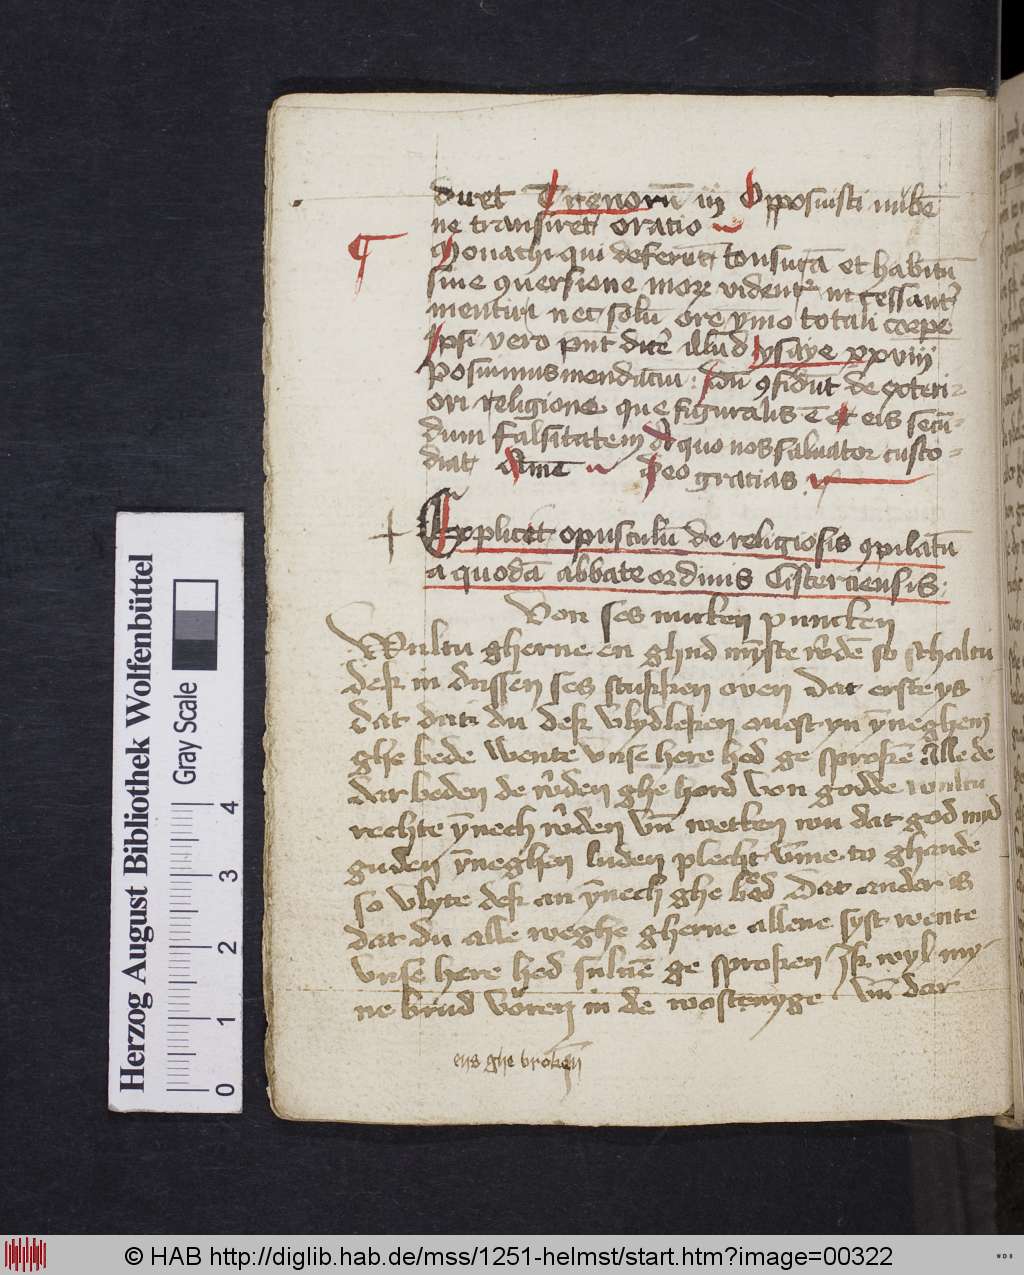 duret Trenorū iij Opposuisti nubē
ne transiret oratio
¶ Monachi qui deferūt tonsurā et habitū
sine ꝯuersione morꝝ videntᷣ incessantᷣ
mentiri nec solū ore ymo totali corpe
Ipsi vero pn̄t dicē illud ysaye xxviij
posuimus mendaciū : Idū ꝯfidūt de exteri
ori religione que figuralis ē et eis secū-
dum falsitatem A quo nos saluator custo-
diat Amē Deo gratias
Explicet opusculū de religiosis ꝯpilatū
a quodā abbate ordinis Cisterciensis
Von ses nucken puncken
Wultu gherne en ghud myste w̄dē so schaltu
dek in dussen ses stukken oven Dat erste ys
dat datu dek vlydleken ouest yn ȳneghem
ghe bede wente vnse here hed ge sprokē Alle de
dar beden de w̄den ghe hord von godde wultu
rechte ȳnech w̄den vn̄ wetken wu dat god myd
guden ȳneghen luden plecht vm̄e to ghande
so vlyte dek an ȳnech ghe bed Dat ander is
dat du alle weghe gherne allene syst wente
vnse here hed suluē ge sproken Ik wyl my-
ne brud voren in de wostenyge vn̄ dar
ens ghe broken
Herzog August Bibliothek Wolfenbüttel
Gray Scale
0 1 2 3 4
© HAB http://diglib.hab.de/mss/1251-helmst/start.htm?image=00322
WDB